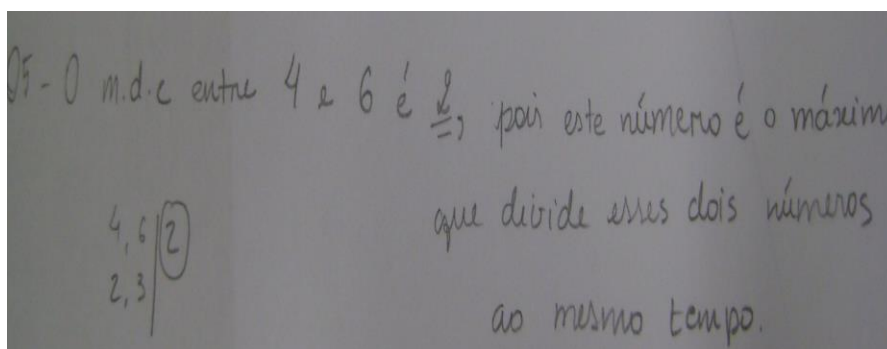 05-O m.d.c entre 4 e 6 é 2, pois este número é o máxim
que divide esses dois números
ao mesmo tempo.
4, 6 | 2
2, 3 |